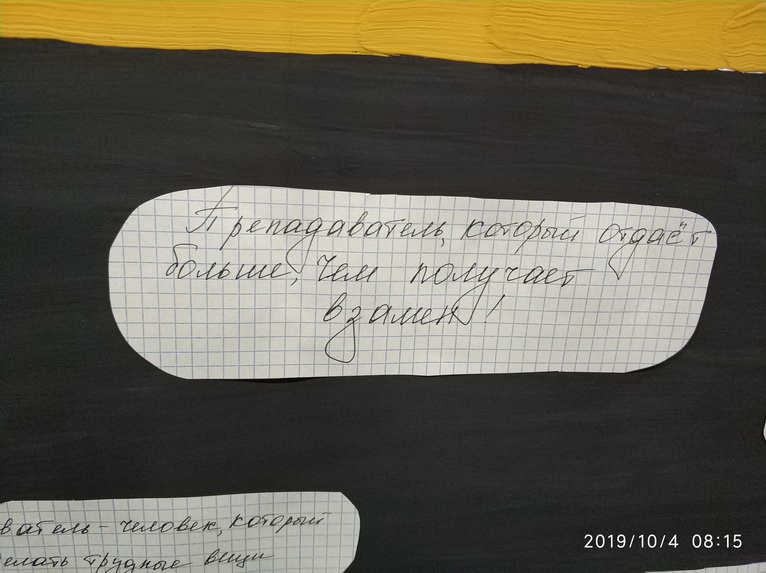 Преподаватель, который отдаёт
больше, чем получает
взамен!
ватель - человек, который
елать трудные вещи
2019/10/4 08:15